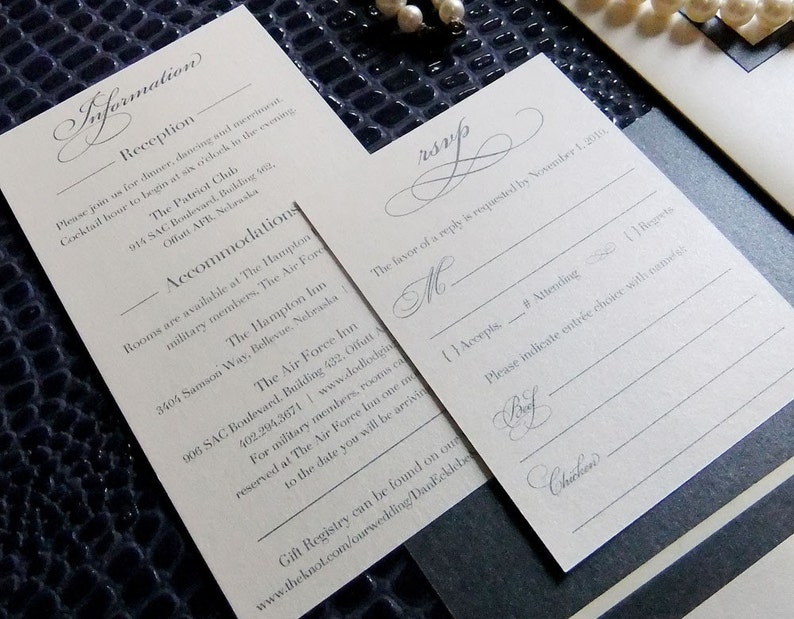 Information
Reception
Please join us for dinner, dancing and merriment.
Cocktail hour to begin at six o'clock in the evening.
The Patriot Club
914 SAC Boulevard, Building 462,
Offutt AFB, Nebraska
Accommodations
Rooms are available at The Hampton
military members, The Air Force
The Hampton Inn
3404 Samson Way, Bellevue, Nebraska |
The Air Force Inn
906 SAC Boulevard, Building 432, Offutt
402.294.3671 | www.dodlodgin
For military members, rooms ca
reserved at The Air Force Inn one mo
to the date you will be arriving
Gift Registry can be found on our
www.theknot.com/ourwedding/DanEcklebe
rsvp
The favor of a reply is requested by November 1, 2010.
M
{ } Accepts, __# Attending { } Regrets
Please indicate entrée choice with name(s)
Beef
Chicken